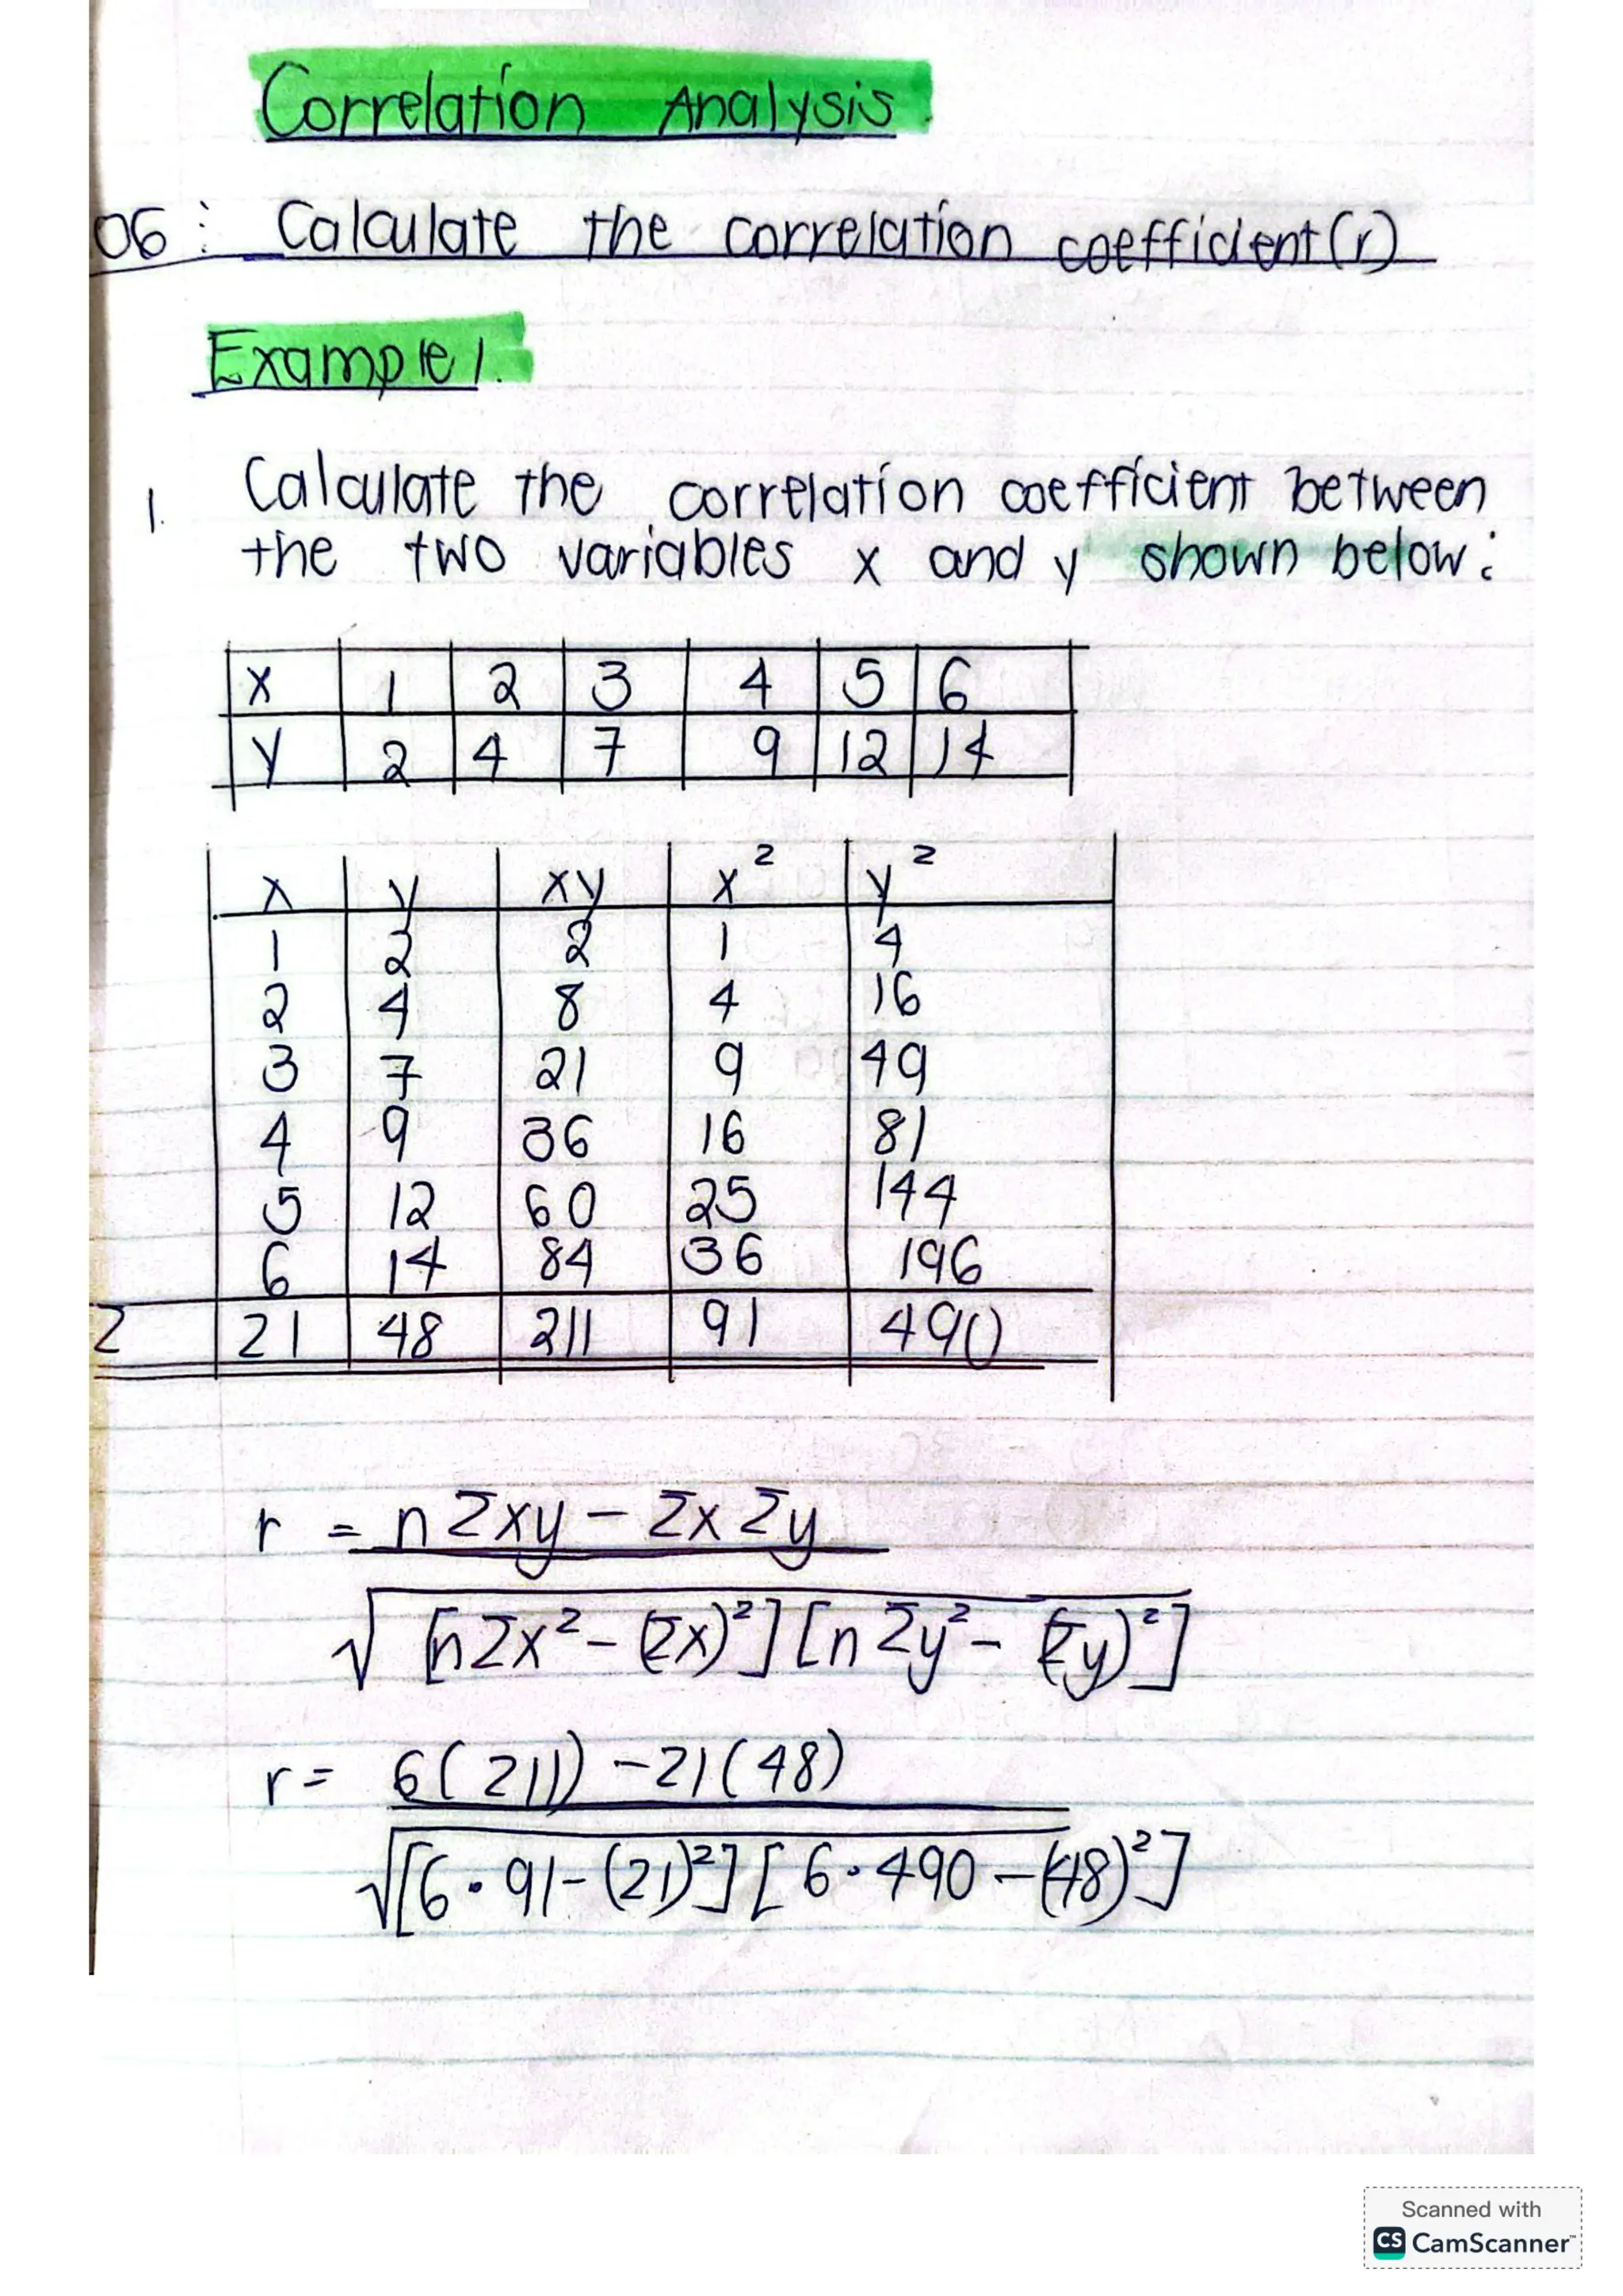 Correlation Analysis
06: Calculate the correlation coefficient (r)
Example 1.
1. Calculate the correlation coefficient between
the two variables x and y shown below:
x 1 2 3 4 5 6
y 2 4 7 9 12 14
x y xy x² y²
1 2 2 1 4
2 4 8 4 16
3 7 21 9 49
4 9 36 16 81
5 12 60 25 144
6 14 84 36 196
Σ 21 48 211 91 490
r = nΣxy - Σx Σy
√[nΣx² - (Σx)²][nΣy² - (Σy)²]
r = 6(211) - 21(48)
√[6·91 - (21)²][6·490 - (48)²]
Scanned with
CS CamScanner™